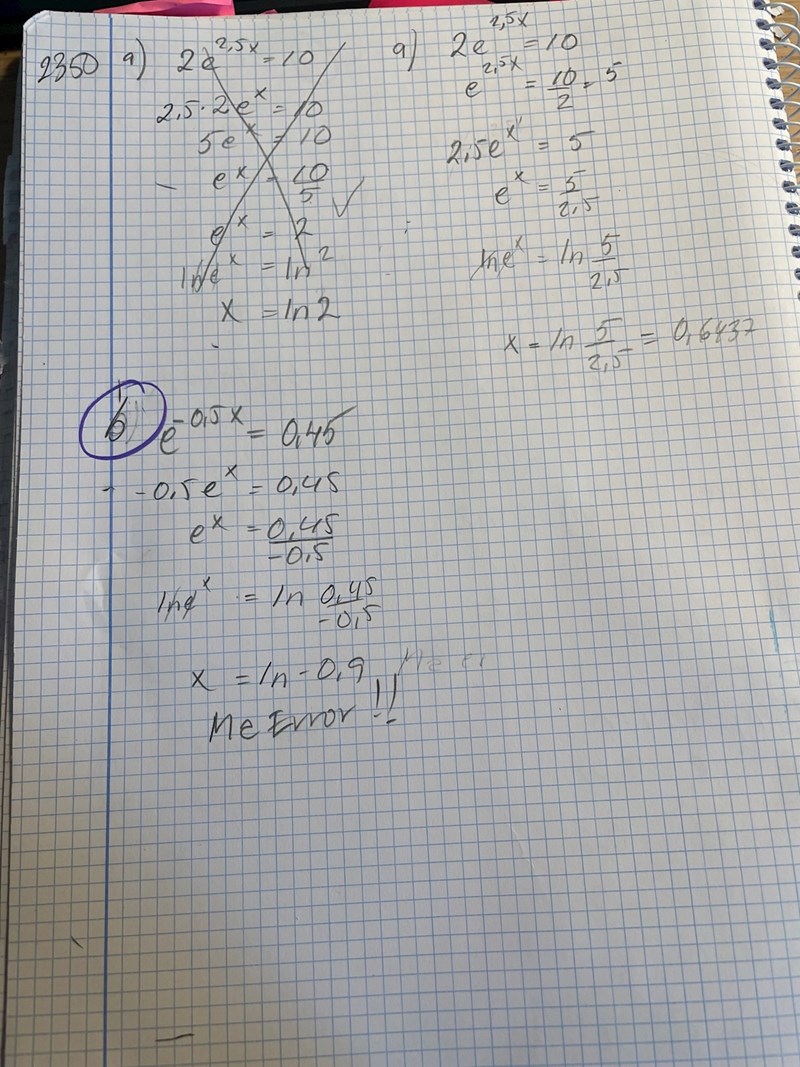 2350 a) 2e^2,5x = 10
2,5 · 2e^x = 10
5e^x = 10
e^x = 10/5 ✓
e^x = 2
ln e^x = ln 2
x = ln 2
a) 2e^2,5x = 10
e^2,5x = 10/2 = 5
2,5e^x = 5
e^x = 5/2,5
ln e^x = ln 5/2,5
x = ln 5/2,5 = 0,6437
b) e^-0,5x = 0,45
-0,5e^x = 0,45
e^x = 0,45/-0,5
ln e^x = ln 0,45/-0,5
x = ln -0,9
Me Error !!